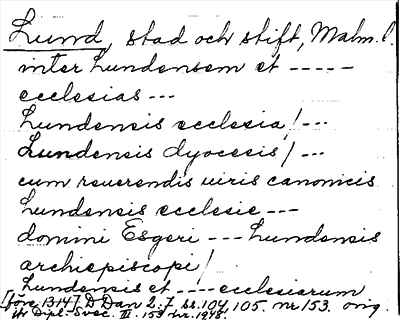 Lund, stad och stift, Malm. l.
inter Lundensem et -----
ecclesias ---
Lundensis ecclesia/---
Lundensis dyocesis/---
cum reuerendis uiris canonicis
Lundensis ecclesie ---
domini Esgeri --- Lundensis
archiepiscopi/
Lundensis et ---- ecclesiarum
[före 1314]. D Dan 2:7 ss. 104, 105. nr 153. orig.
Dipl. Svec. III. 153 nr. 1978.